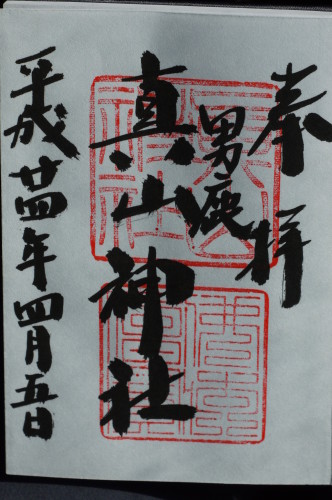 奉拝
男鹿
真山神社
平成廿四年四月五日